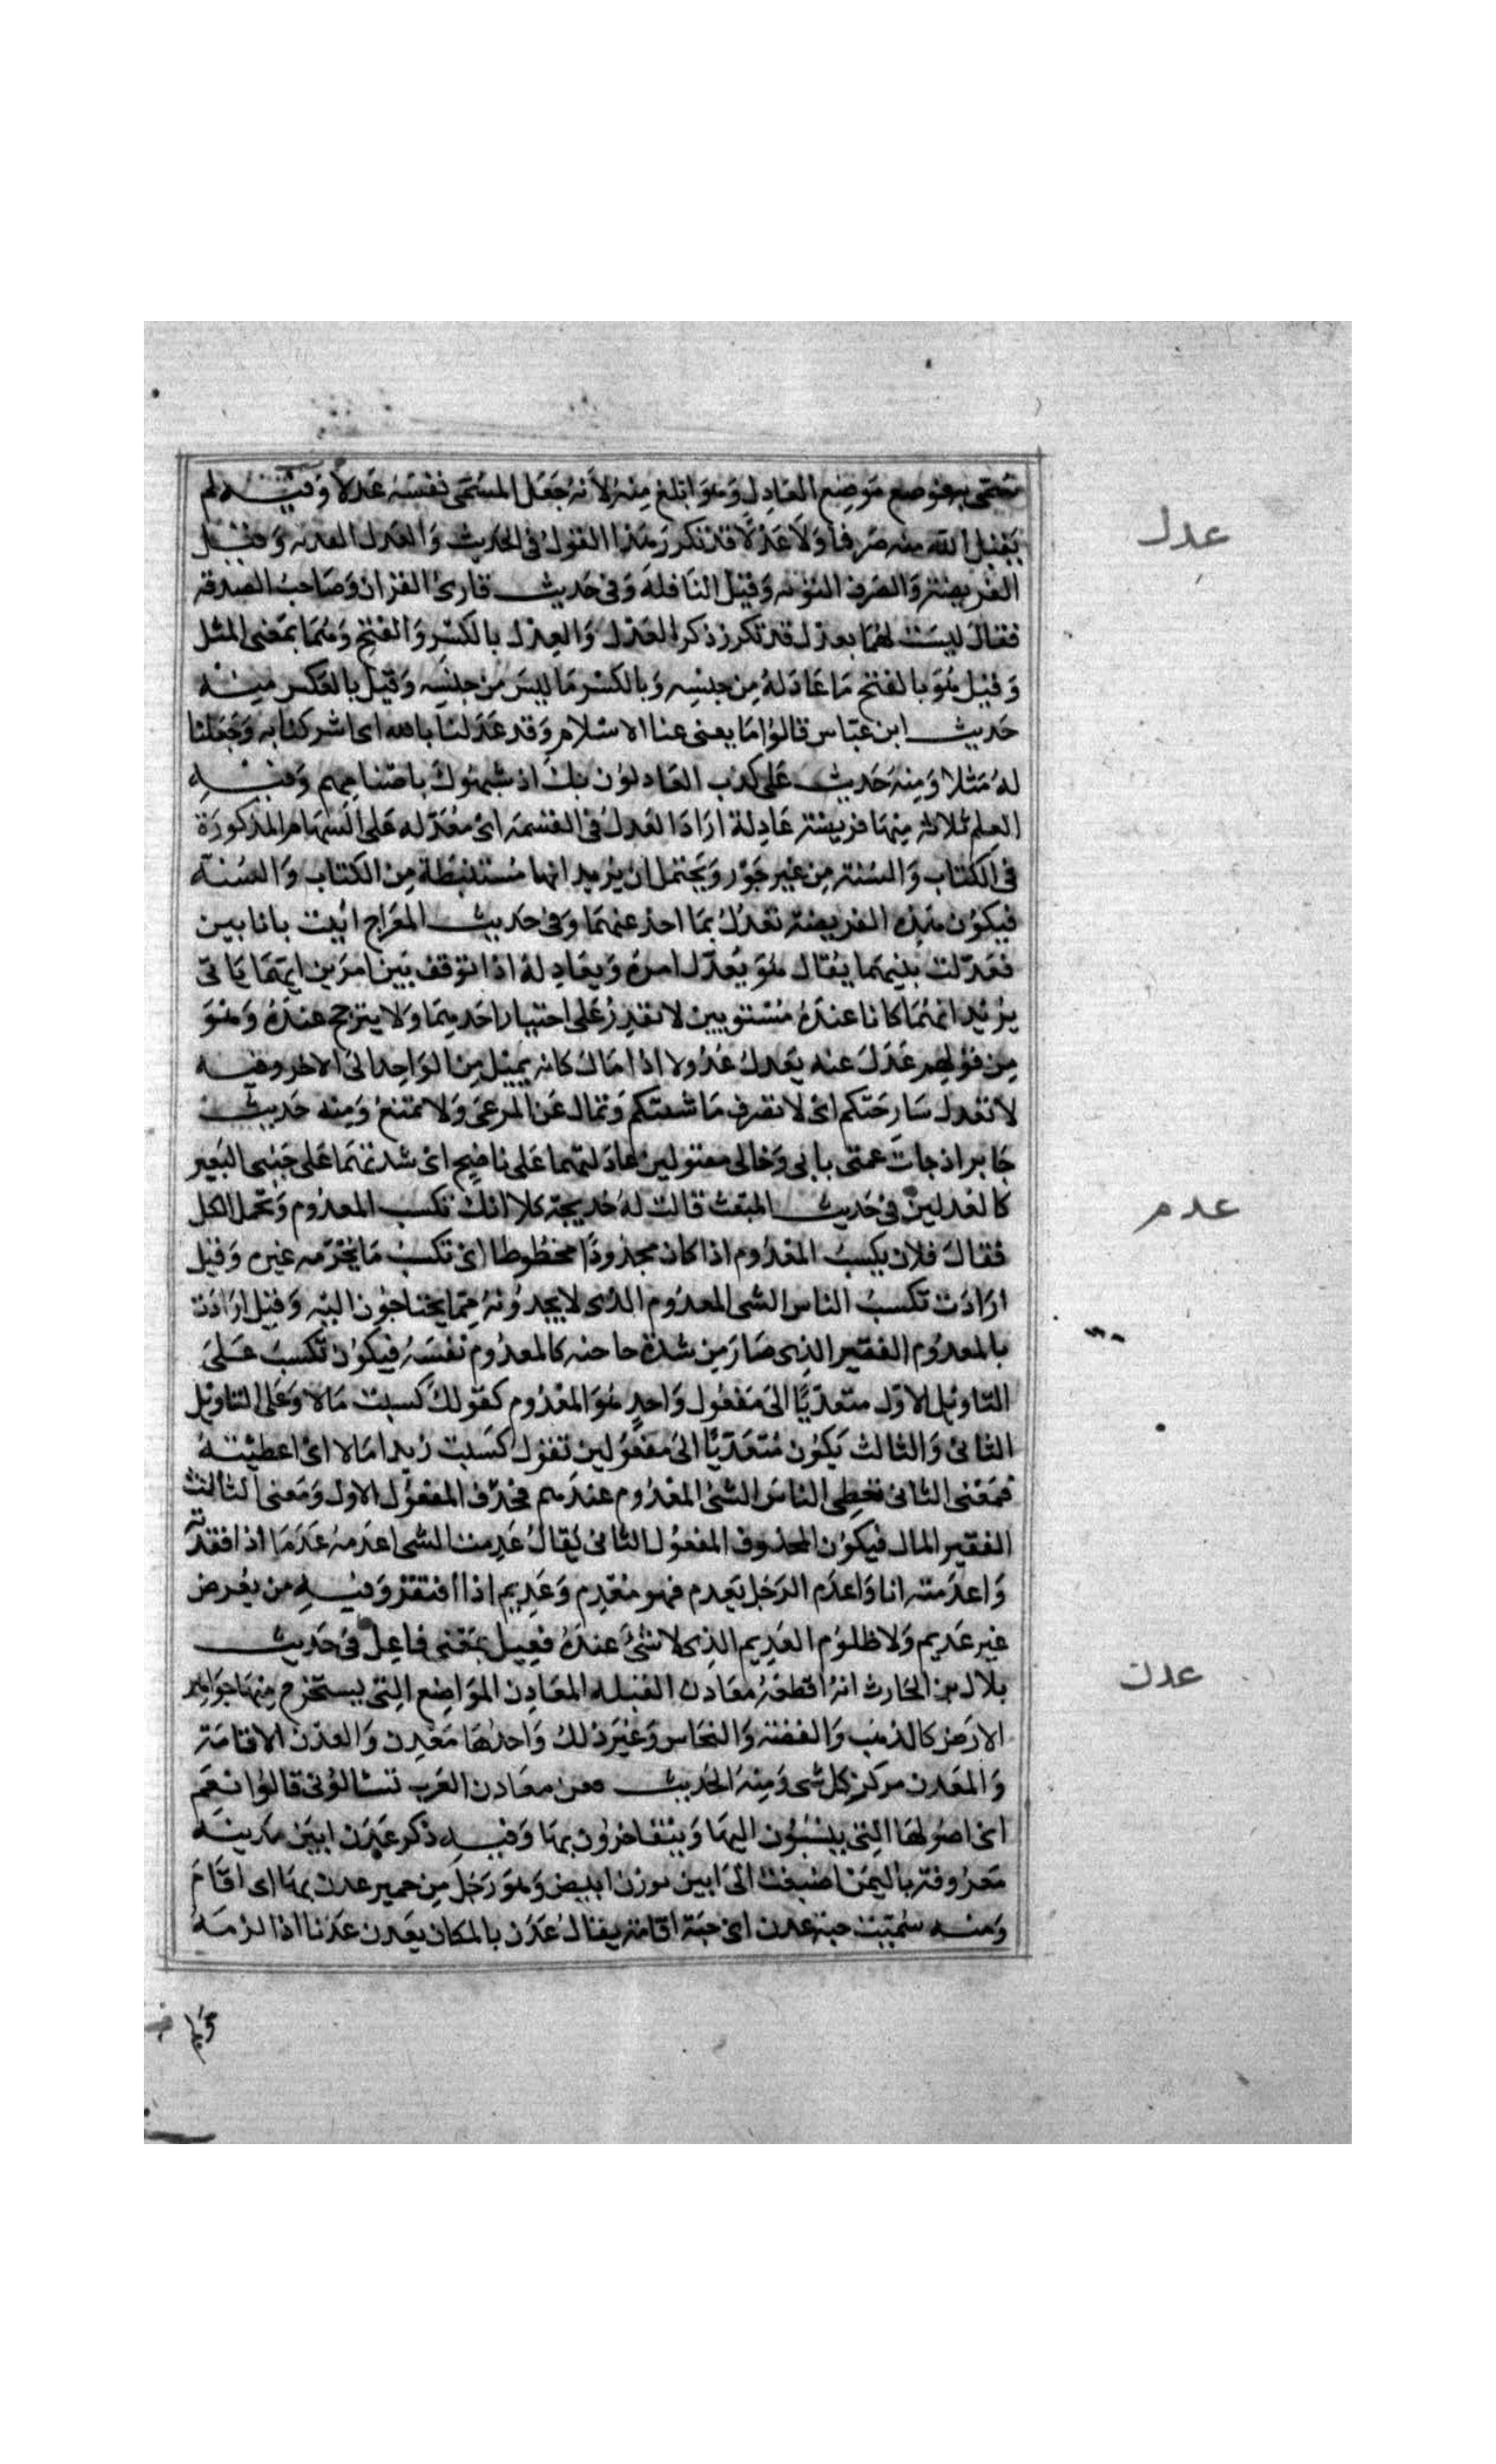 سمى به فوضع موضع العادل وهو ابلغ منه لانه جعل المسمى نفسه عدلا وفيه لم
عدل
يقبل الله منه صرفا ولا عدلا قد تكرر هذا القول فى الحديث والعدل الفديه وقيل
الفريضة والصرف التوبه وقيل النافلة وفى حديث قارئ القران وصاحب الصدقة
فقال ليست لهما بعدل قد تكرر ذكر العدل والعدل بالكسر والفتح وهما بمعنى المثل
وقيل هو بالفتح ما عادله من جنسه وبالكسر ما ليس من جنسه وقيل بالعكس منه
حديث ابن عباس قالوا ما يغنى عنا الاسلام وقد عدلنا بالله اى اشركنا به وجعلنا
له مثلا ومنه حديث على كذب العادلون بك اذ شبهوك باصنامهم وفيه
العلم ثلاثة منها فريضة عادلة اراد العدل فى القسمة اى معدله على السهام المذكورة
فى الكتاب والسنة من غير جور ويحتمل ان يريد انها مستنبطة من الكتاب والسنة
فيكون هذه الفريضة تعدل بما اخذ عنهما وفى حديث المعراج اتيت بانا بين
فعدلت بينهما يقال هو يعدل امره ويعادله اذا توقف بين امرين ايهما ياتى
يريد انهما كانا عنده مستويين لا تقدر على اختيار احدهما ولا يترجح عنده وهو
من قولهم عدل عنه يعدل عدولا اذا مال كانه يميل من الواحد الى الاخر وفيه
لا تعدل سارحتكم اى لا تصرف ماشيتكم وتمال عن المرعى ولا تمنع ومنه حديث
جابر اذ جات عمتى بابى وخالى مقتولين عادلتهما على ناضح اى شددتهما على جنبى البعير
كالعدلين فى حديث المبعث قالت له خديجة كلا انك تكسب المعدوم وتحمل الكل
عدم
فقال فلان يكسب المعدوم اذا كان مجدودا محظوظا اى تكسب ما يحرمه غيره وقيل
ارادت تكسب الناس الشى المعدوم الذى لا يجدونه مما يحتاجون اليه وقيل ارادت
بالمعدوم الفقير الذى صار من شدة حاجته كالمعدوم نفسه فيكون تكسب على
التاويل الاول متعديا الى مفعول واحد هو المعدوم كقولك كسبت مالا وعلى التاويل
الثانى والثالث يكون متعديا الى مفعولين تقول كسبت زيدا مالا اى اعطيته
فمعنى الثانى تعطى الناس الشئ المعدوم عندهم فحذف المفعول الاول ومعنى الثالث
الفقير المال فيكون المحذوف المفعول الثانى يقال عدمت الشى اعدمه عدما اذا فقدته
واعدمته انا واعدم الرجل يعدم فهو معدم وعديم اذا افتقر وفيه من يقرض
غير عديم ولا ظلوم العديم الذى لا شئ عنده فعيل بمعنى فاعل فى حديث
عدن
بلال بن الحارث انه اقطعه معادن القبلية المعادن المواضع التى يستخرج منها جواهر
الارض كالذهب والفضة والنحاس وغير ذلك واحدها معدن والعدن الاقامة
والمعدن مركز كل شى ومنه الحديث فعن معادن العرب تسئالونى قالوا نعم
اى اصولها التى ينسبون اليها ويتفاخرون بها وفيه ذكر عدن ابين مدينة
معروفة باليمن اضيفت الى ابين بوزن ابيض وهو رجل من حمير عدن بها اى اقام
ومنه سميت جنة عدن اى جنة اقامة يقال عدن بالمكان يعدن عدنا اذا لزمه